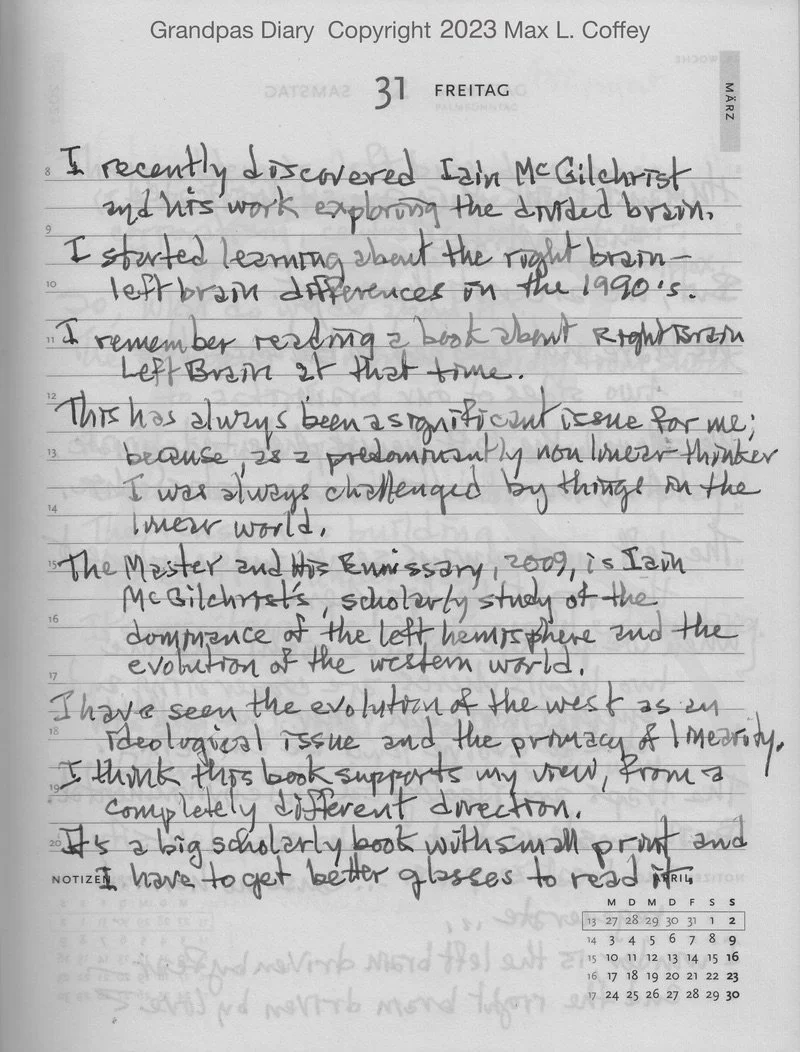 Grandpas Diary Copyright 2023 Max L. Coffey
31 FREITAG
MÄRZ
8 I recently discovered Iain McGilchrist
and his work exploring the divided brain.
9 I started learning about the right brain–
10 left brain differences in the 1990's.
11 I remember reading a book about Right Brain
Left Brain at that time.
12 This has always been a significant issue for me;
13 because, as a predominantly non linear thinker
I was always challenged by things in the
14 linear world.
15 The Master and His Emissary, 2009, is Iain
McGilchrist's, scholarly study of the
16 dominance of the left hemisphere and the
17 evolution of the western world.
I have seen the evolution of the west as an
18 ideological issue and the primacy of linearity.
19 I think this book supports my view, from a
completely different direction.
20 It's a big scholarly book with small print and
NOTIZEN I have to get better glasses to read it.
APRIL
M D M D F S S
13 27 28 29 30 31 1 2
14 3 4 5 6 7 8 9
15 10 11 12 13 14 15 16
16 17 18 19 20 21 22 23
17 24 25 26 27 28 29 30